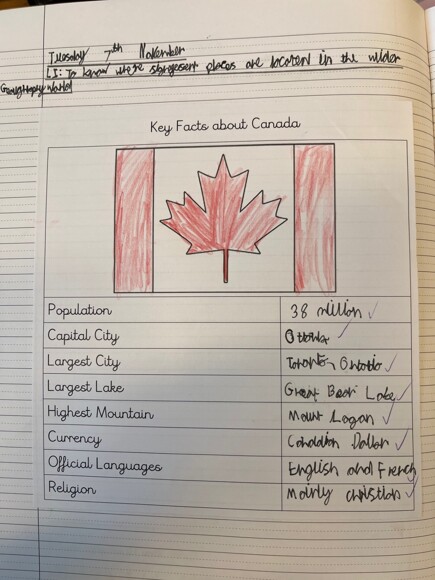 Tuesday 7th November
LI: To know where places are located in the wider
world
Key Facts about Canada
Population 38 million
Capital City Ottawa
Largest City Toronto, Ontario
Largest Lake Great Bear Lake
Highest Mountain Mount Logan
Currency Canadian Dollar
Official Languages English and French
Religion Mainly christian